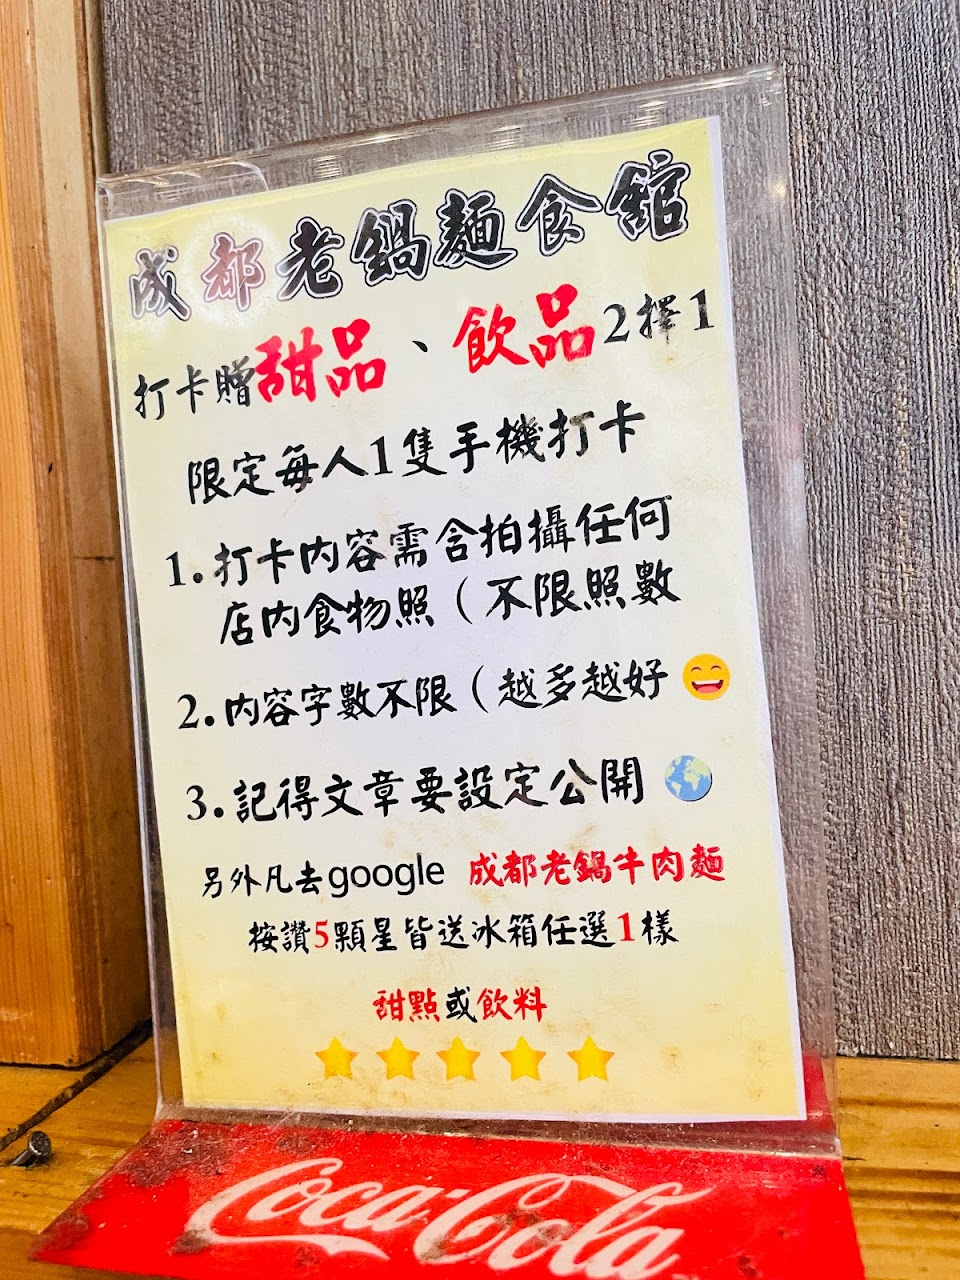 成都老鍋麵食舘
打卡贈甜品、飲品2擇1
限定每人1隻手機打卡
1.打卡內容需含拍攝任何
店內食物照（不限照數
2.內容字數不限（越多越好😄
3.記得文章要設定公開🌍
另外凡去google 成都老鍋牛肉麵
按讚5顆星皆送冰箱任選1樣
甜點或飲料
Coca-Cola